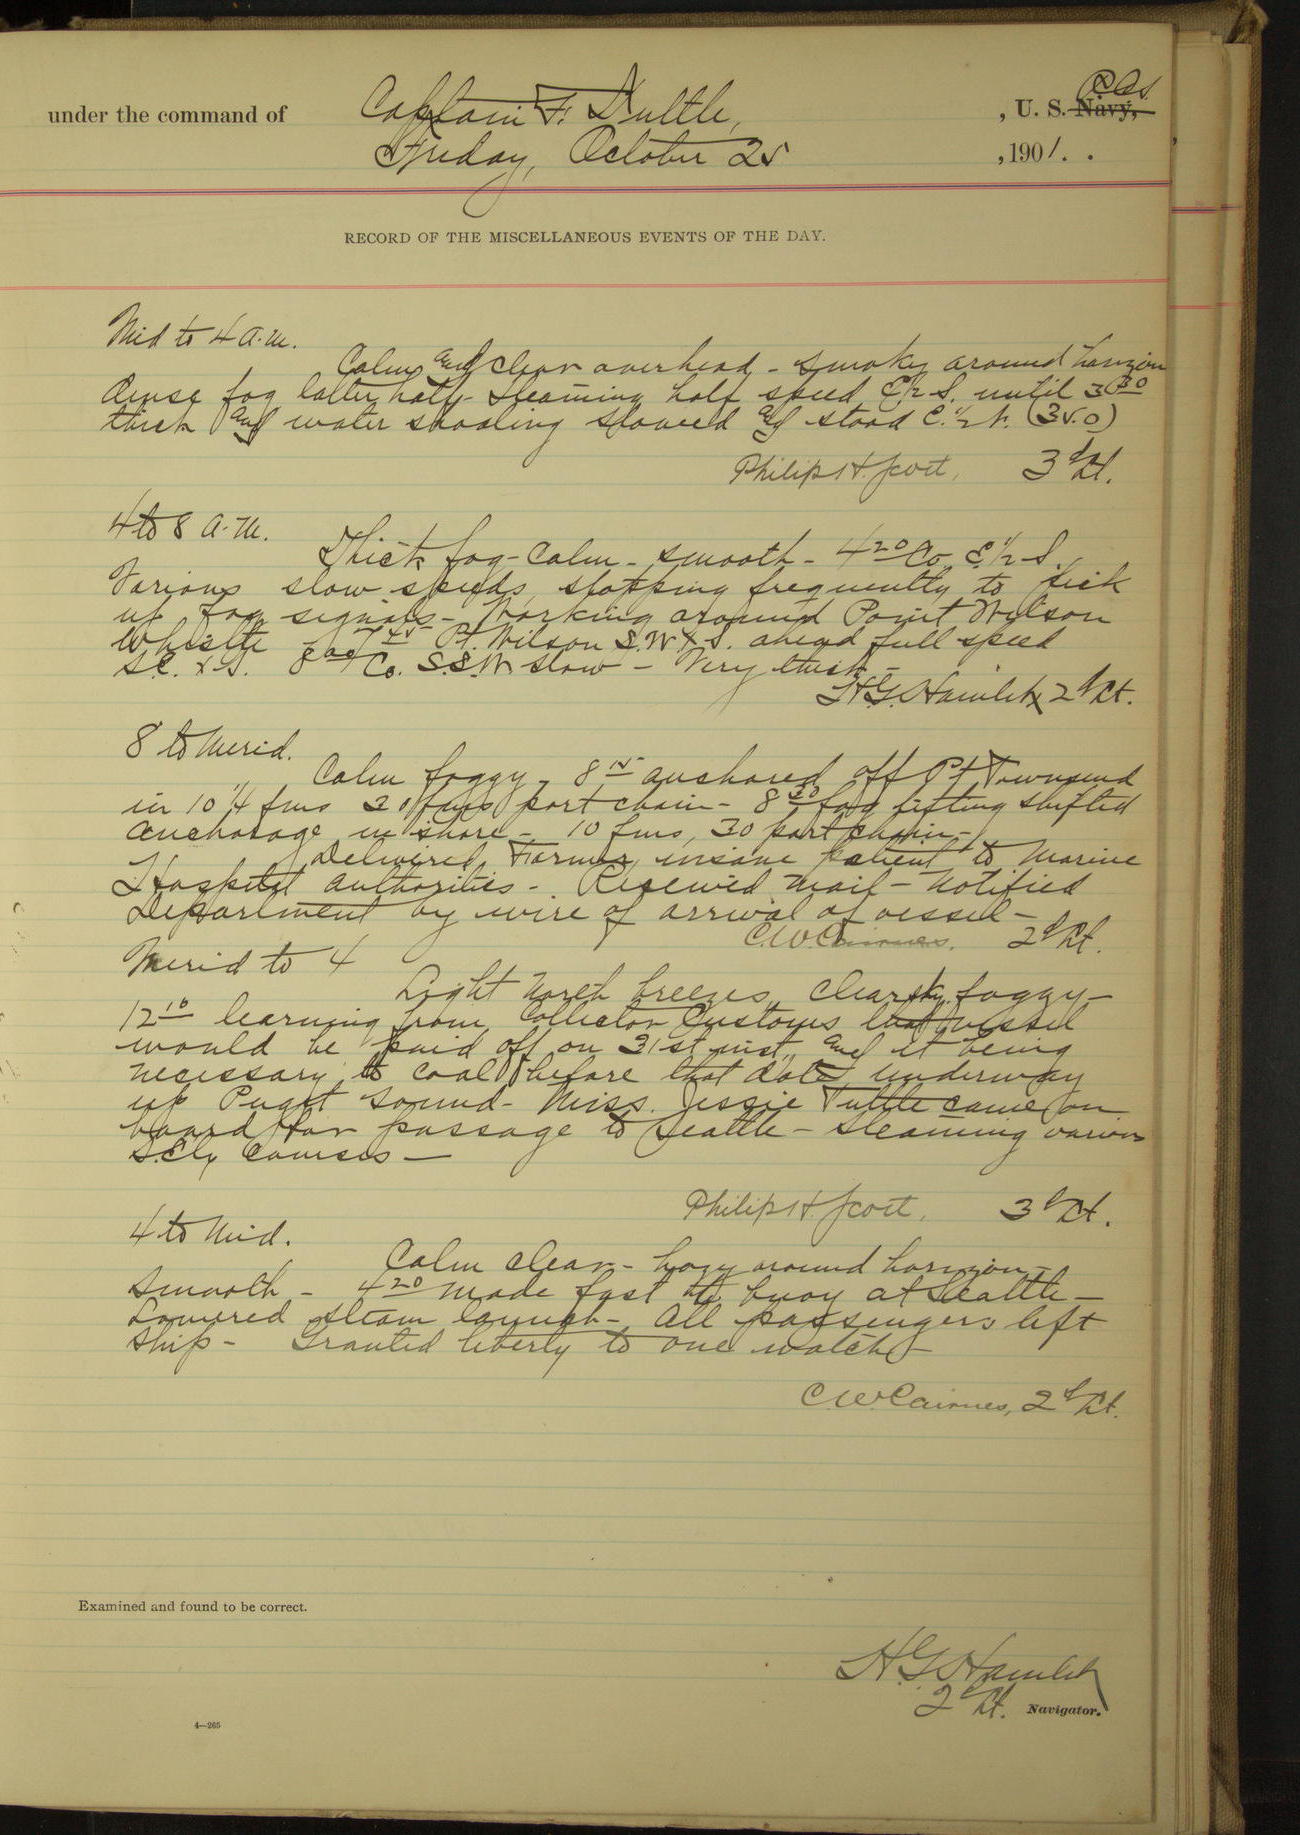 under the command of Captain F. Tuttle, , U. S. Navy, R.C.S.
Friday, October 25 , 1901. .
RECORD OF THE MISCELLANEOUS EVENTS OF THE DAY.
Mid to 4 a.m.
Calm and clear overhead - smoky around horizon
dense fog latter half - Steaming half speed E 1/2 S. until 3 30
thick and water shoaling slowed and stood E. 1/2 N. (35.0)
Philip H. Scott, 3d Lt.
4 to 8 a.m.
Thick fog - Calm - smooth - 4 20 Co. E. 1/2 S.
Various slow speeds, stopping frequently to pick
up fog signals - Working around Point Wilson
Whistle - 7 45 Pt. Wilson S.W x S. ahead full speed
S.E. x S. 8 00 Co. S.S.W. slow - Very thick -
H.G. Hamlet 2d Lt.
8 to Merid.
Calm foggy - 8 15 anchored off Pt Townsend
in 10 1/4 fms 30 fms port chain - 8 30 fog lifting shifted
anchorage in shore - 10 fms, 30 port chain -
Delivered, Farmer, insane patient to Marine
Hospital authorities - Received mail - Notified
Department by wire of arrival of vessel -
C.W. Cairnes. 2d Lt.
Merid to 4
Light North breezes, Clear sky foggy -
12 10 learning from Collector Customs that vessel
would be paid off on 31st inst, and it being
necessary to coal before that date, underway
up Puget Sound - Miss. Jessie Tuttle came on
board for passage to Seattle - Steaming various
S.Ely Courses -
Philip H. Scott, 3d Lt.
4 to Mid.
Calm clear - hazy around horizon -
Smooth - 4 20 made fast to buoy at Seattle -
Lowered steam launch - All passengers left
ship - Granted liberty to one watch -
C.W. Cairnes, 2d Lt.
Examined and found to be correct.
H.G. Hamlet
2d Lt. Navigator.
4—265